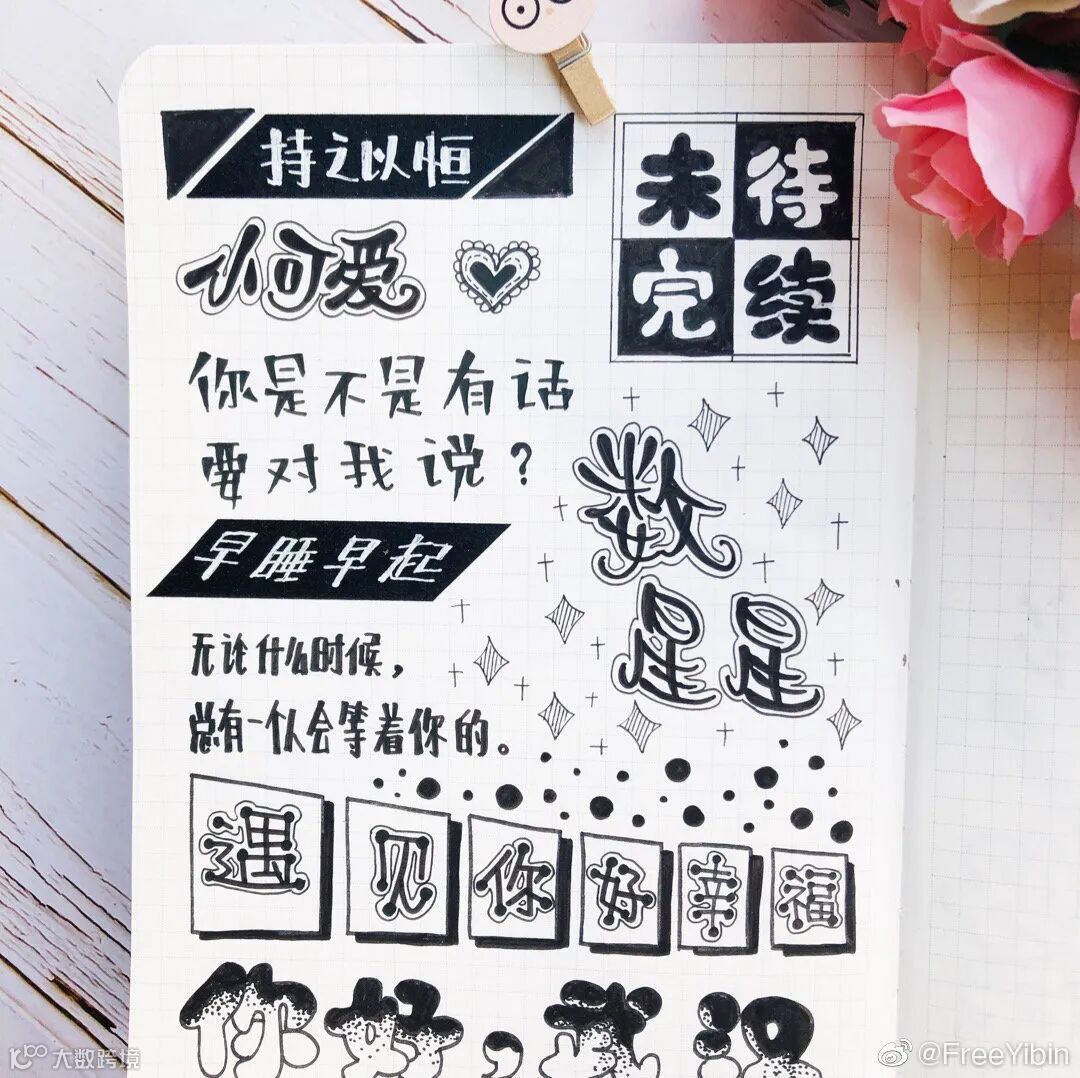 持之以恒
未待
完续
小可爱
你是不是有话
要对我说？
数
星星
早睡早起
无论什么时候，
总有一个人会等着你的。
遇见你好幸福
你好，我
大数跨境
@FreeYibin